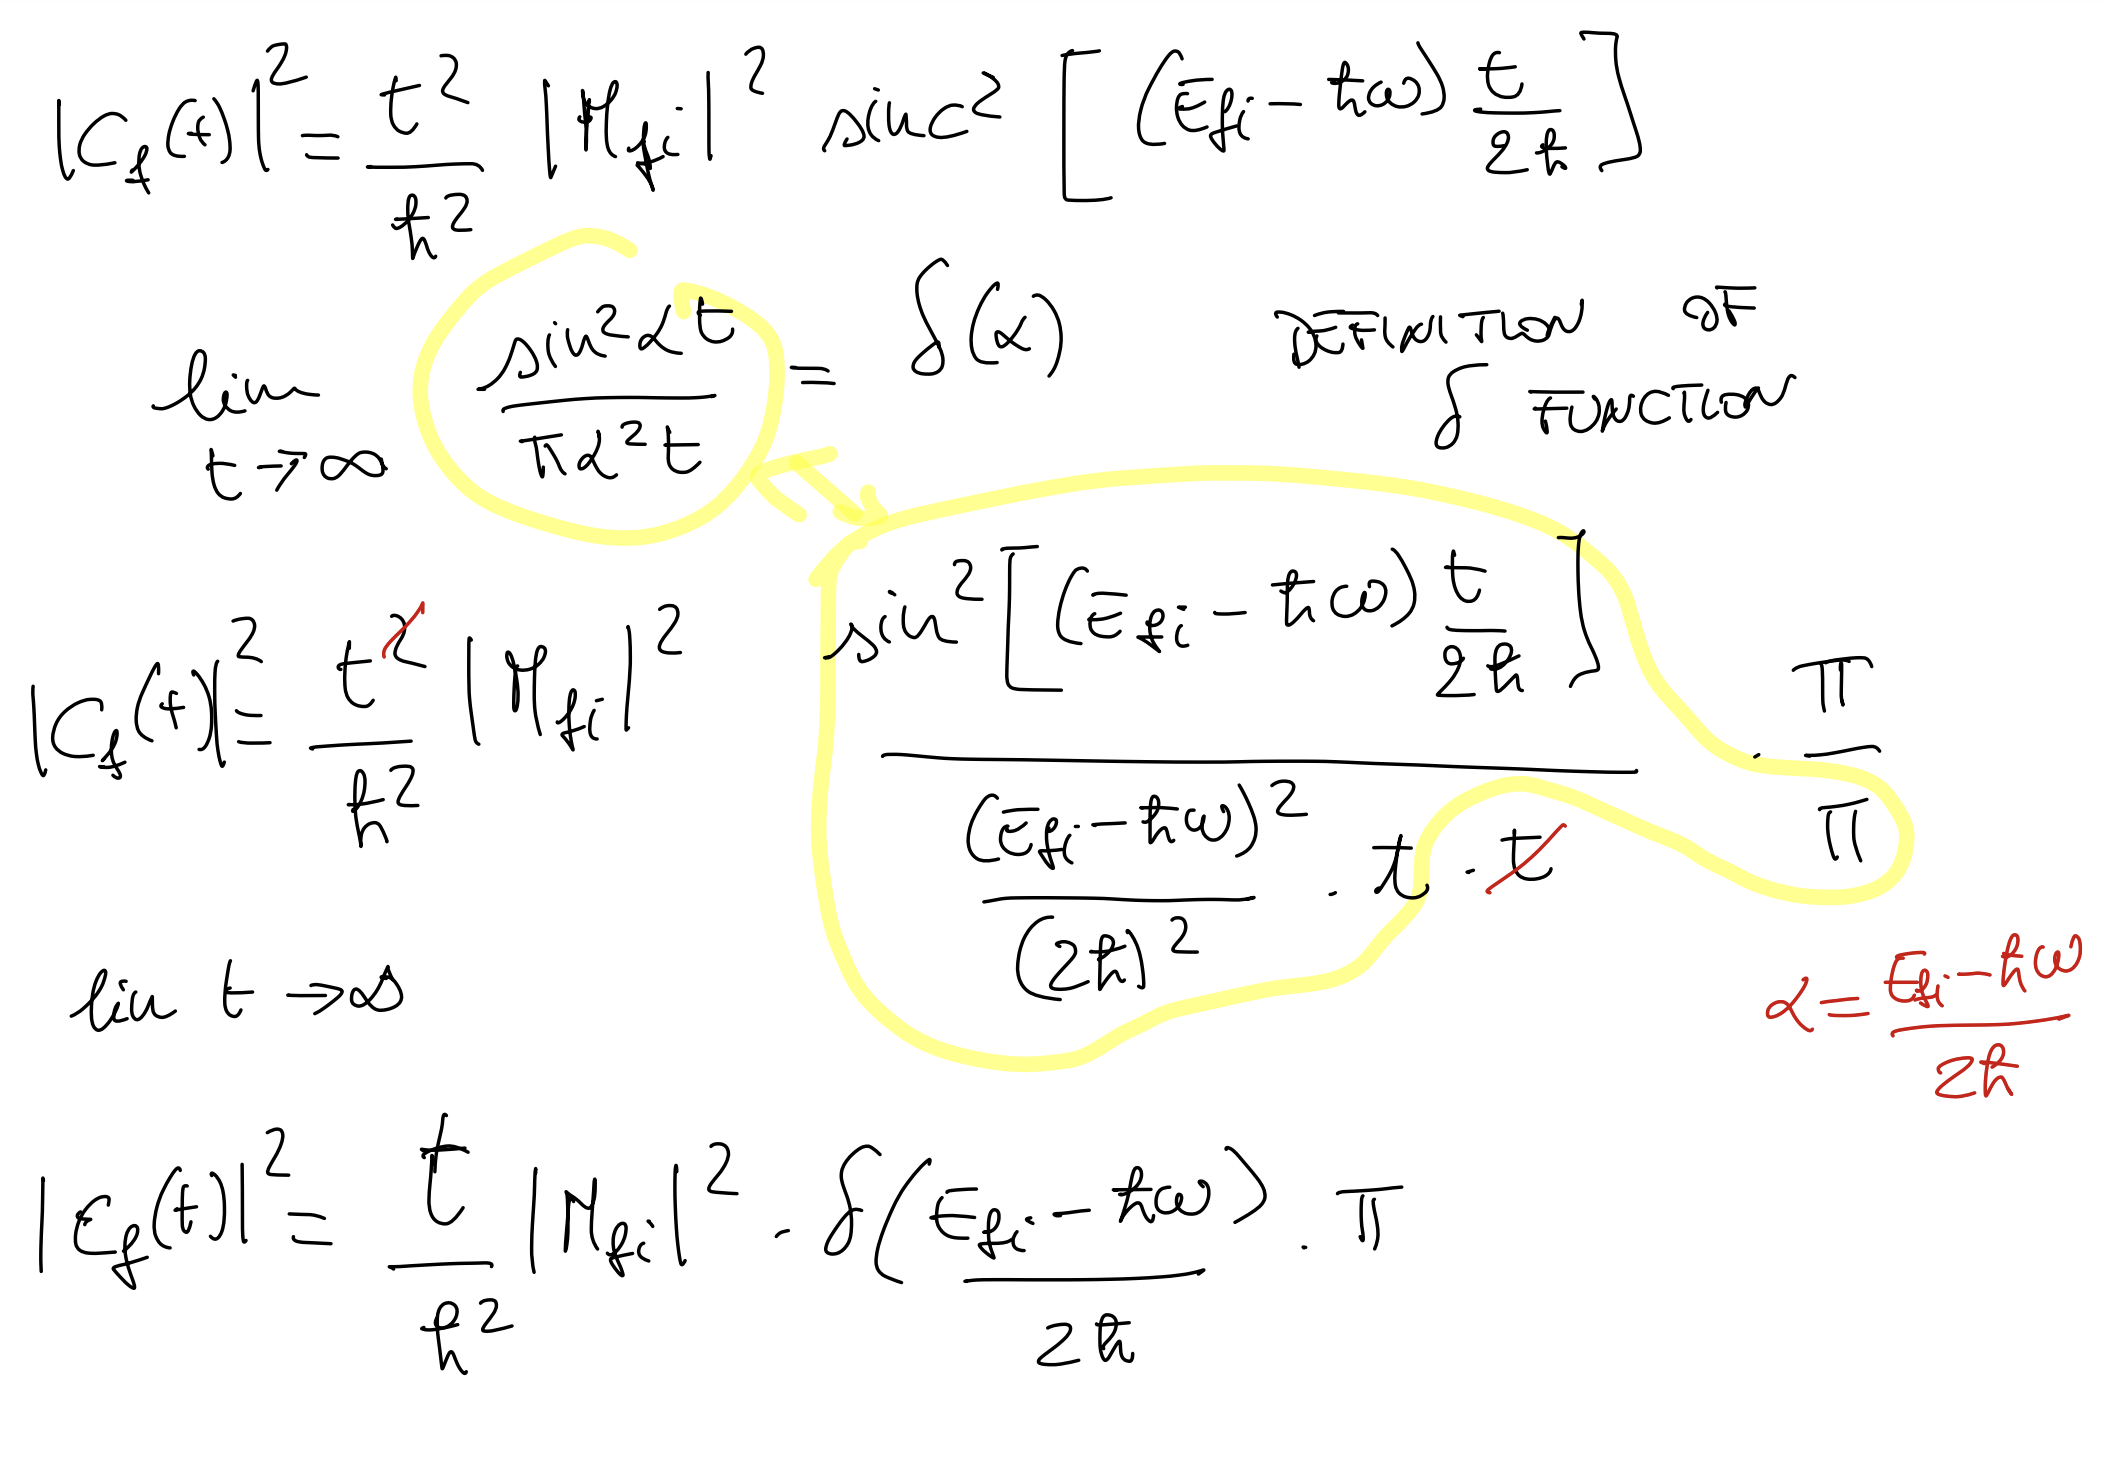 |C_f(t)|² = t²/ħ² |M_fi|² sinc² [(E_fi - ħω) t/2ħ]
lim t→∞ sin²αt / πα²t = δ(α) DEFINITION OF
δ FUNCTION
|C_f(t)|² = t²/ħ² |M_fi|² sin² [(E_fi - ħω) t/2ħ] / (E_fi - ħω)²/(2ħ)² · t · t · π/π
lim t→∞
α = E_fi - ħω / 2ħ
|C_f(t)|² = t/ħ² |M_fi|² · δ(E_fi - ħω / 2ħ) · π